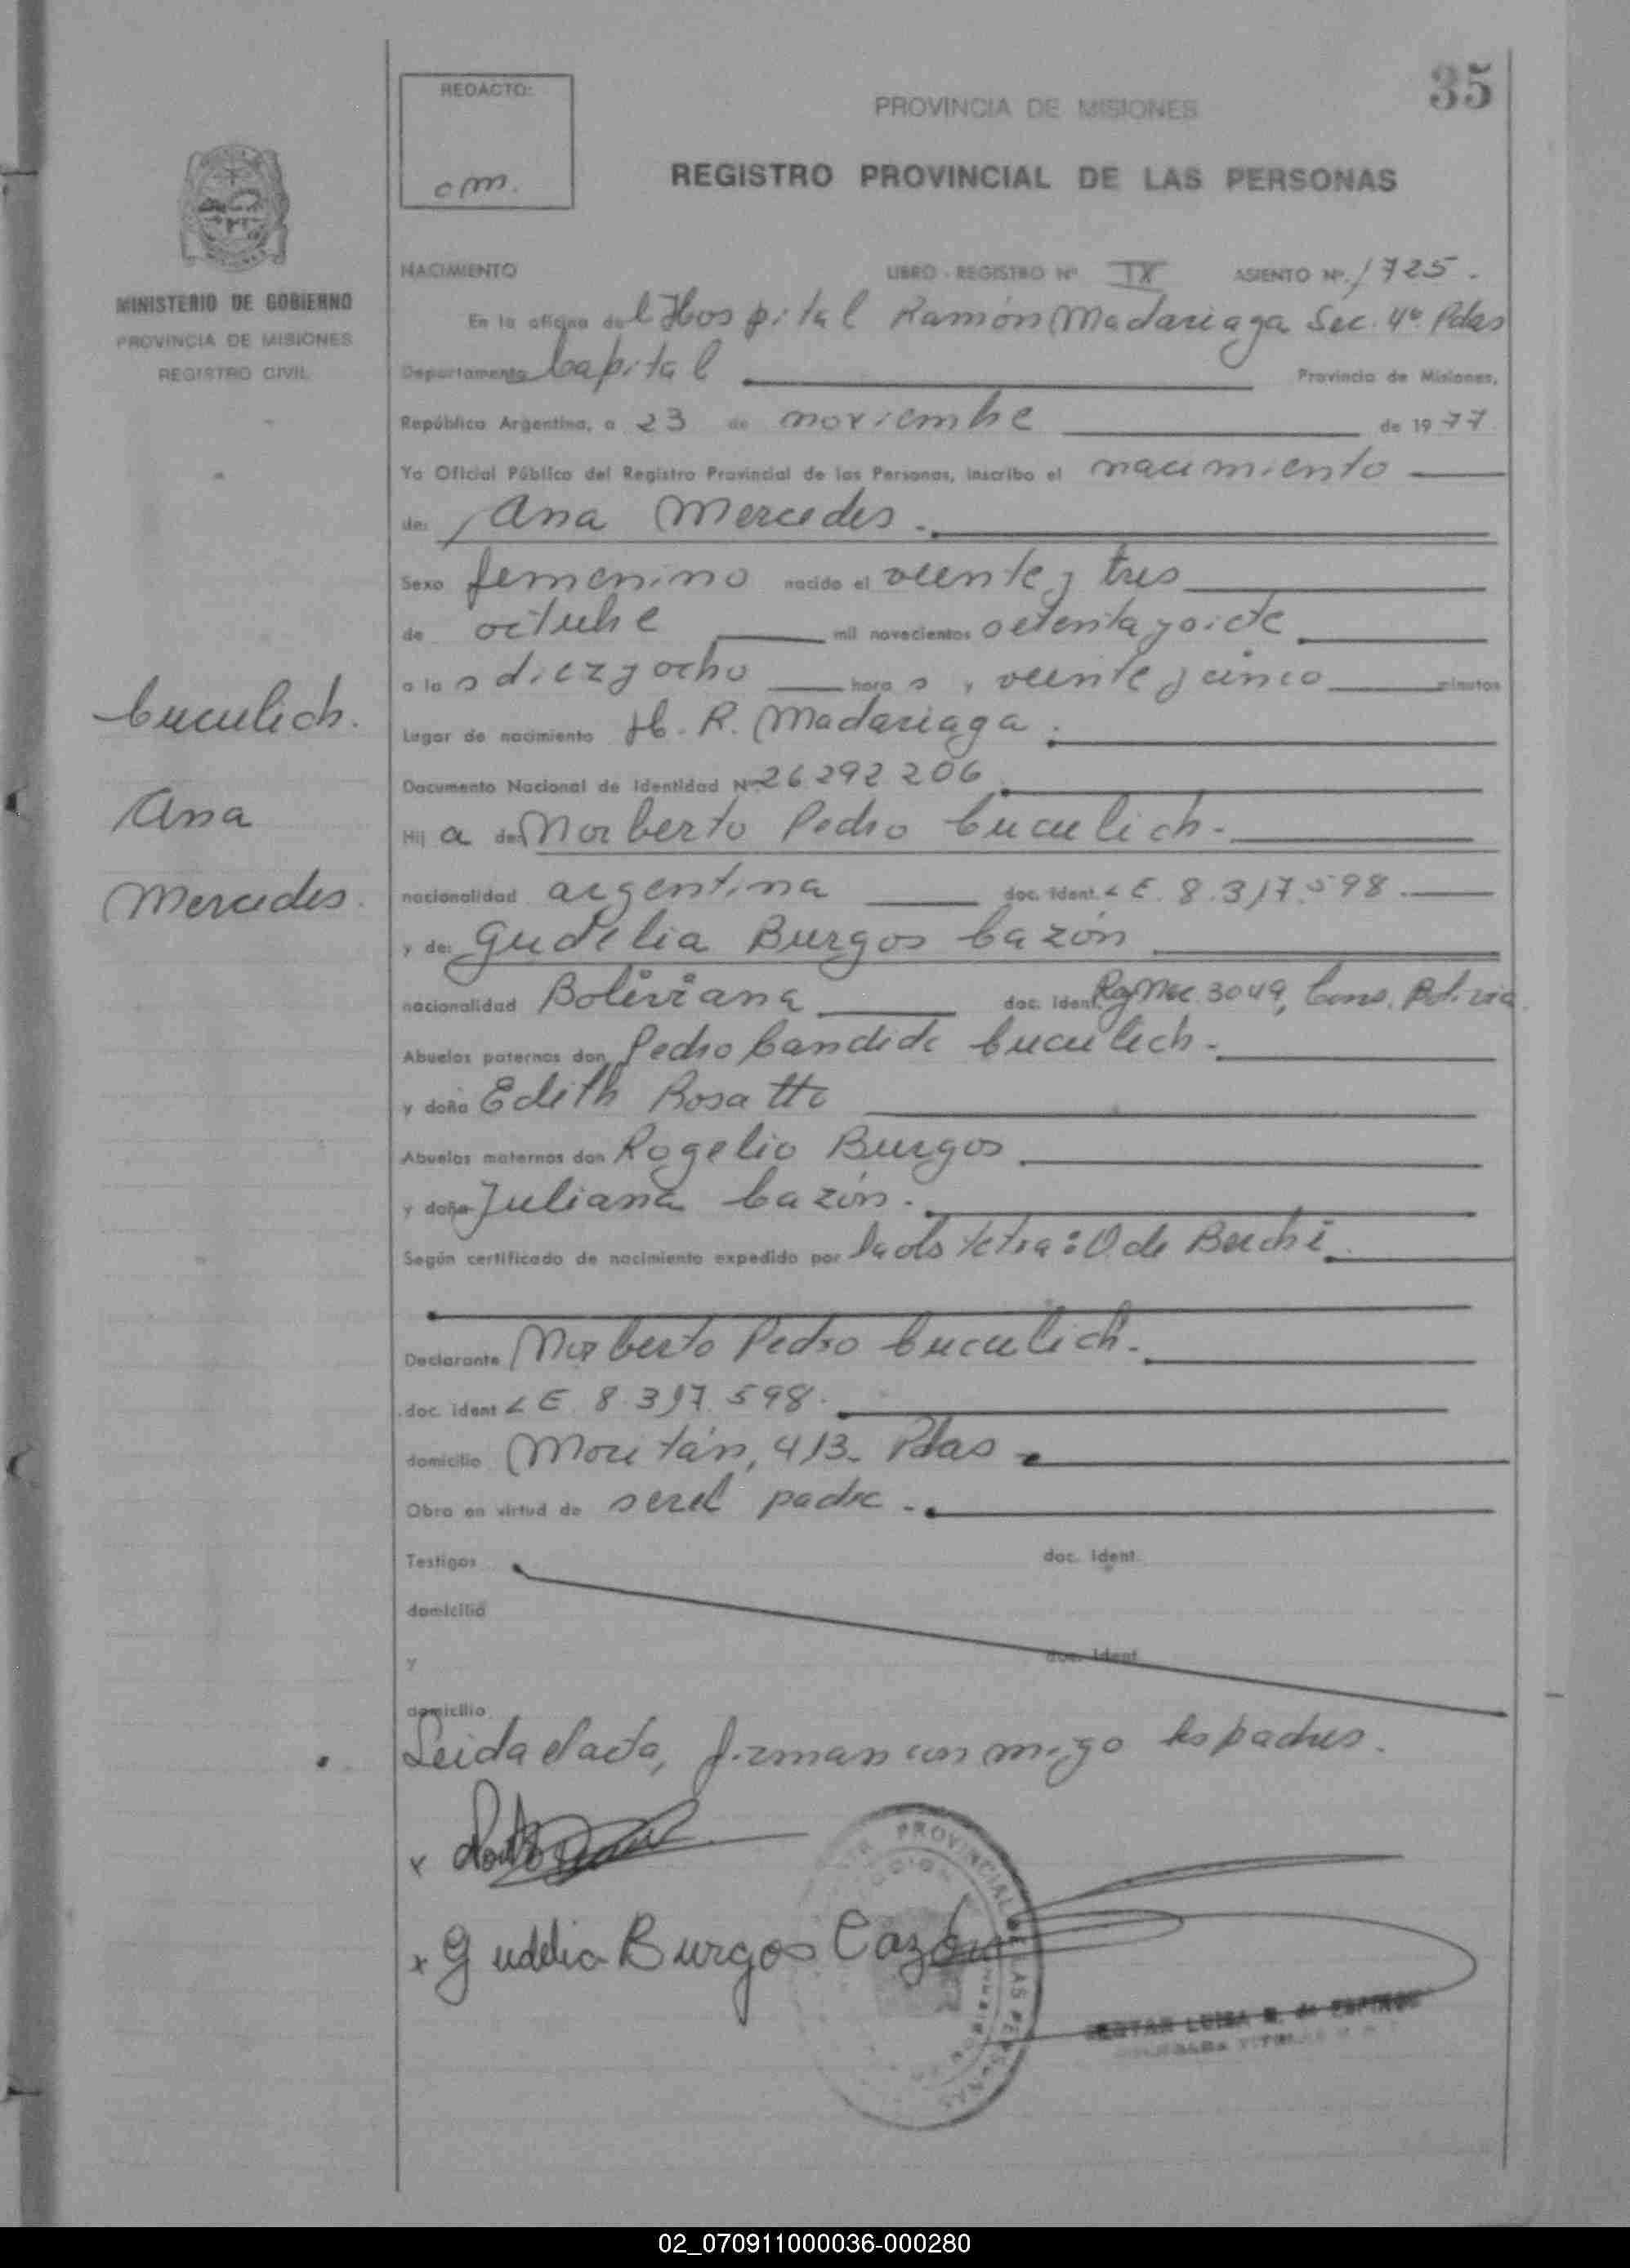 35
REDACTO:
cm.
PROVINCIA DE MISIONES
REGISTRO PROVINCIAL DE LAS PERSONAS
MINISTERIO DE GOBIERNO
PROVINCIA DE MISIONES
REGISTRO CIVIL
NACIMIENTO LIBRO - REGISTRO Nº IX ASIENTO Nº. 1725.
En la oficina del Hospital Ramón Madariaga Sec. 4º Pdas
Departamento Capital Provincia de Misiones,
República Argentina, a 23 de noviembre de 1977
Yo Oficial Público del Registro Provincial de las Personas, inscribo el nacimiento
de: Ana Mercedes.
Sexo femenino nacido el veinte y tres
de octubre mil novecientos setenta y siete
a las diez y ocho horas y veinte y cinco minutos
Cuculich.
Ana
Mercedes.
Lugar de nacimiento H. R. Madariaga.
Documento Nacional de Identidad Nº 26 292 206
Hij a de: Norberto Pedro Cuculich.
nacionalidad argentina doc. Ident. L E. 8.317.598.
y de: Gudelia Burgos Cazón
nacionalidad Boliviana doc. Ident. 3049, Cons. Bolivia.
Abuelos paternos don Pedro Candido Cuculich.
y doña Edith Rosatti
Abuelos maternos don Rogelio Burgos
y doña Juliana Cazón.
Según certificado de nacimiento expedido por la obstetra: O. de
Declarante Norberto Pedro Cuculich.
doc. ident L E. 8.317.598.
domicilio Moritán, 413. Pdas
Obra en virtud de ser el padre.
Testigos doc. ident.
domicilio
y doc. ident
domicilio
Leida el acta, firman con migo los padres.
x
x Gudelia Burgos Cazón
PROVINCIAL DE LAS PERSONAS
LUISA de
02_070911000036-000280